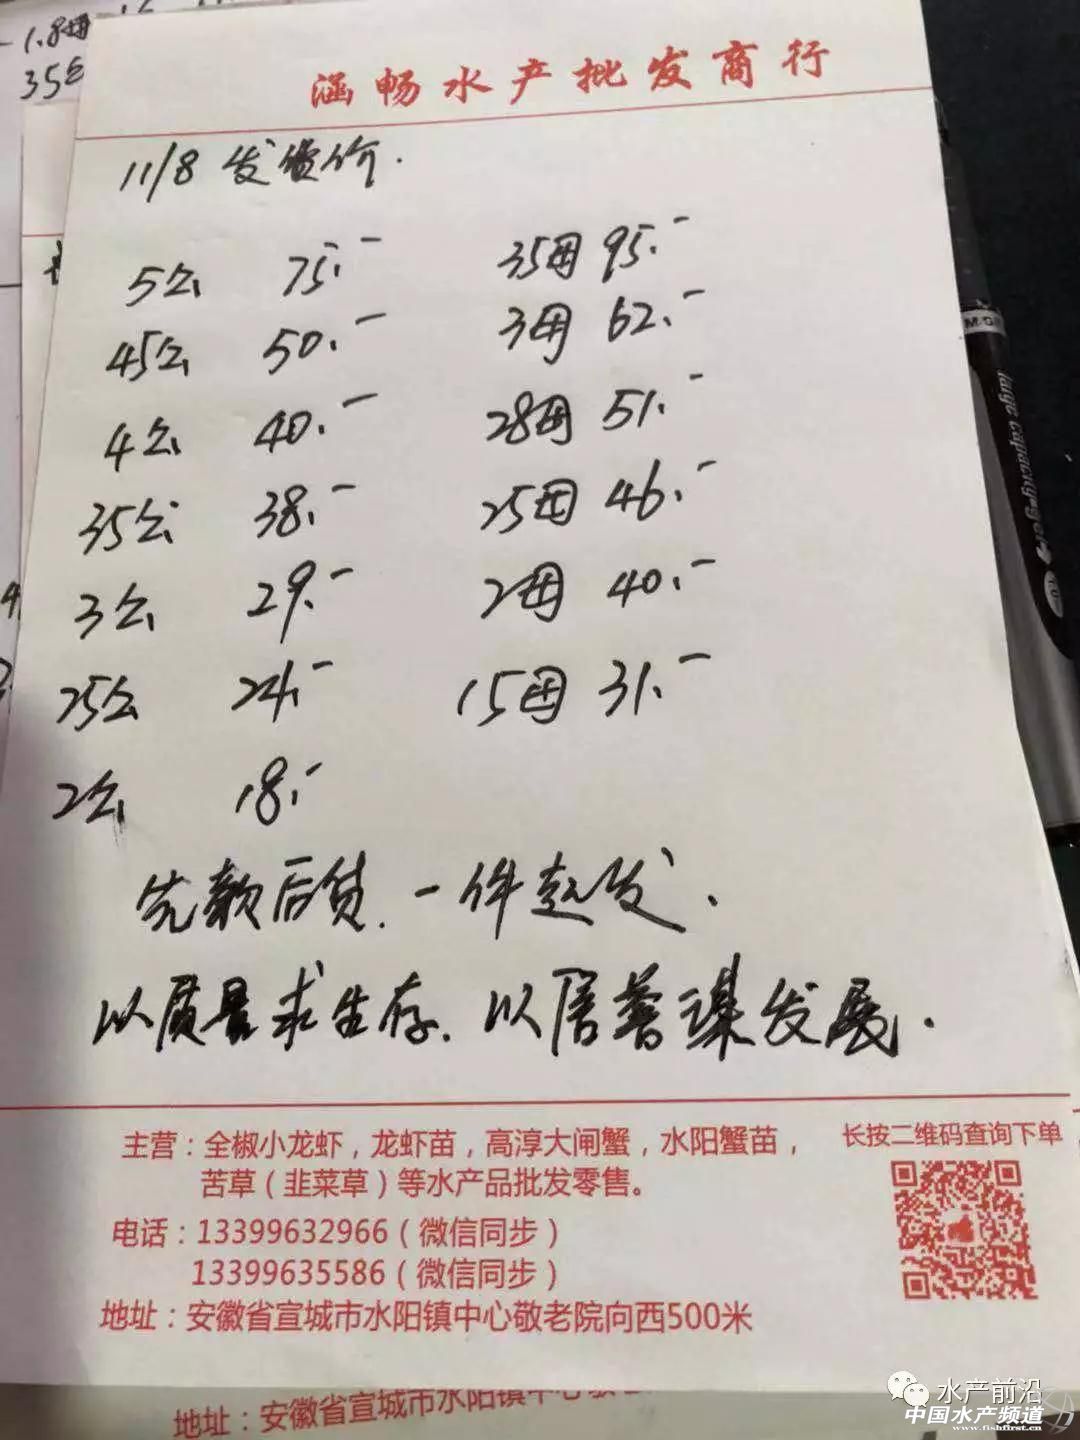 1.8母
35公
涵畅水产批发商行
11/8 发货价.
5公 75.- 35母 95.-
45公 50.- 3母 62.-
4公 40.- 28母 51.-
35公 38.- 25母 46.-
3公 29.- 2母 40.-
25公 24.- 15母 31.-
2公 18.-
先款后货.一件起发.
以质量求生存.以信誉谋发展.
主营：全椒小龙虾，龙虾苗，高淳大闸蟹，水阳蟹苗，
苦草（韭菜草）等水产品批发零售。
长按二维码查询下单
电话：13399632966（微信同步）
13399635586（微信同步）
地址：安徽省宣城市水阳镇中心敬老院向西500米
地址：安徽省宣城市水阳镇中心敬老
large capacity
水产前沿
中国水产频道
www.fishfirst.cn